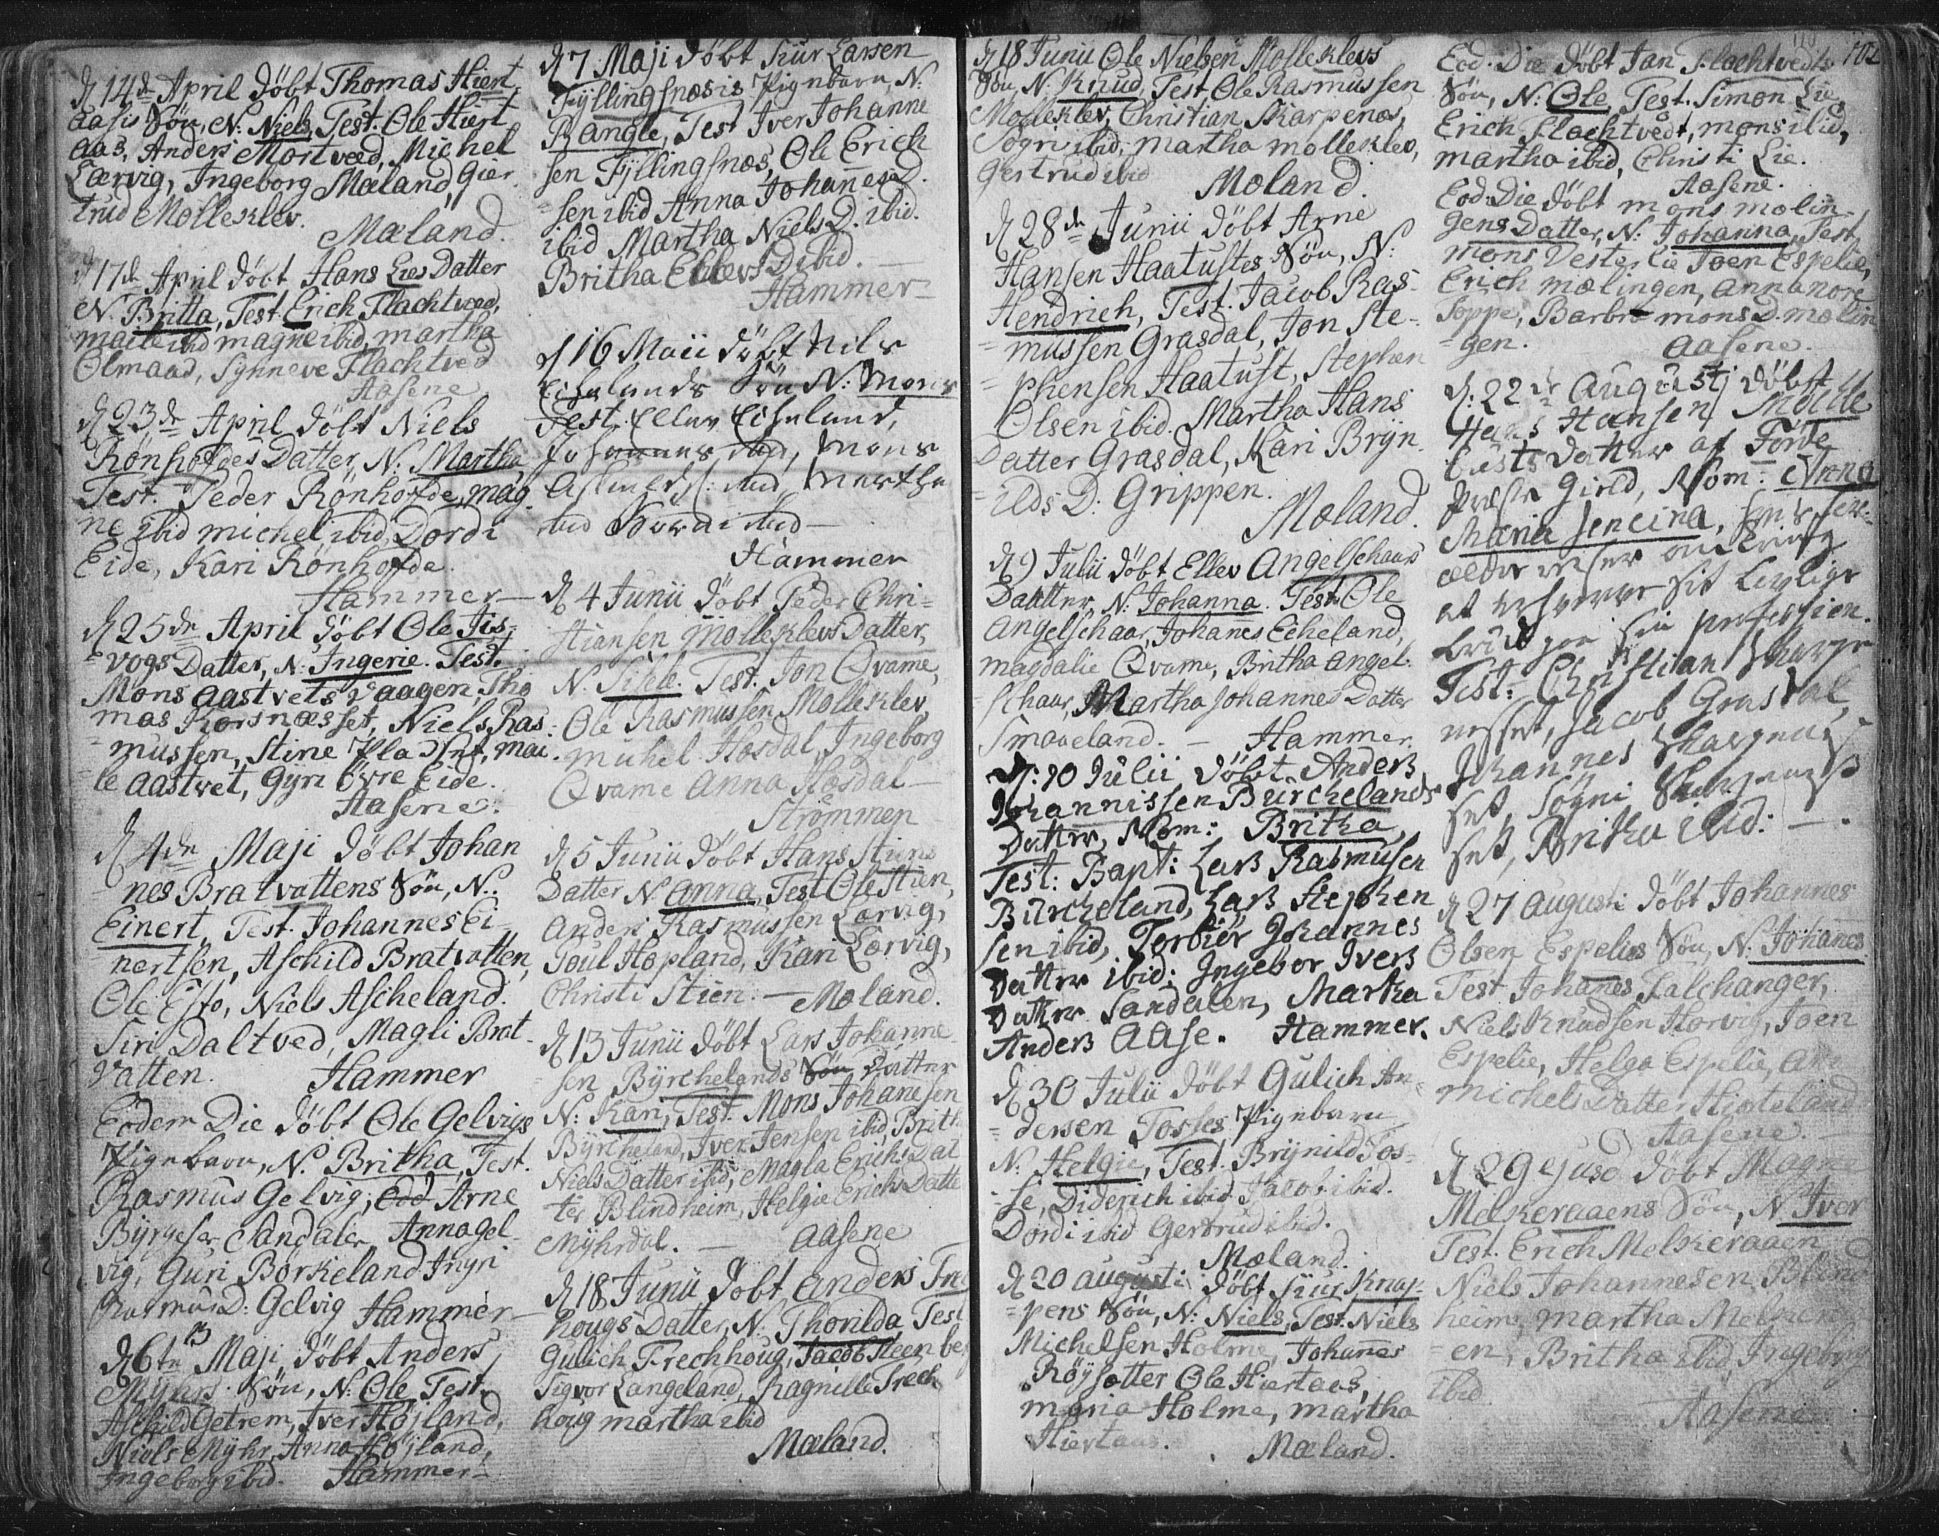 d 14de April døbt Thomas Hiert
aasis Søn, N: Niels, Test. Ole Hiert
aas, Anders Mortved, Michel
Lærvig, Ingeborg Mæland, Gier
trud Molleklev.
Mæland.
d 17de April døbt Hans Lies Datter
N. Britta, Test. Erich Flachtved,
ibid magne ibid, martha
Ølmaad, Synneve Flachtved
Aasene
d 23de April døbt Niels
Rønhofdes Datter, N: Martha,
Test. Peder Rønhofde, mag
ne ibid michel ibid, Dordi
Eide, Kari Rønhofde.
Hammer
d 25de April døbt Ole
vogs Datter, N: Ingerie. Test.
Mons Aastvets Vaagen, Tho
mas Korsnæsset, Niels Ras
mussen, Stine mar
te aastvet, Gyri Øvre Eide.
Aasene.
d 4de Maji døbt Johan
nes Bratvattens Søn, N.
Einert, Test. Johannes Ei
nertsen, Aschild Bratvatten,
Ole Niels Ascheland.
Siri Daltved, Magli Brat
vatten. Hammer
Eodem Die døbt Ole Gelvigs
Pigebarn, N. Britha, Test.
Rasmus Gelvig, Arne
Byrgesen Sandalen Anna Gel
vig, Guri Børkeland
Rasmus D: Gelvig Hammer
d 6te Maji døbt Anders
Myhrs Søn, N: Ole Test.
Aschild Getrem, Iver Højland,
Niels Myhr, Anna Højland,
Ingeborg ibid. Hammer
d 7 Maji døbt Siur Larsen
Fyllingsnæsis Pigebarn, N:
Rangle, Test Iver Johanne
sen Fyllingsnæs, Ole Erich
sen ibid Anna Johannes D.
ibid Martha Niels D. ibid.
Britha Ellevs D ibid.
Hammer
d 16 Maii døbt Nils
Eichelands Søn N: Mons
Test. Ellev Eicheland,
Johannes ibid, Mons
ibid, Martha
ibid ibid
Hammer
d 4 Junii døbt Peder Chri
stiansen Molleklevs Datter,
N. Sisele. Test. Jon Qvame,
Ole Rasmussen Molleklev
michel Hosdal, Ingeborg
Qvame Anna Hosdal
Strømmen
d 5 Junii døbt Hans Stiens
Datter N Anna, Test Ole Stien,
Anders Rasmussen Lærvig,
Poul Hopland, Kari Lærvig,
Christi Stien. Mæland.
d 13 Junii døbt Lars Johanne
sen Byrchelands Søn Datter
N: Kari, Test. Mons Johanesen
Byrcheland, Iver Jensen ibid, Brith
Niels Datter ibid, Magla Erichs Dat
ter Blindheim, Helgie Erichs Datte
Myhrdal. Aasene
d 18 Junii døbt Anders Trech
hougs Datter, N. Thorilda, Test
Gulich Trechhoug, Jacob Steenbe
Sigvor Langeland, Ragnille Trech
houg martha ibid
Mæland.
d 18 Junii Ole Nielsen Molleklevs
Søn, N: Knud, Test Ole Rasmussen
Molleklev, Christian Skarpenæs,
Søgri ibid, martha molleklev,
Gertrud ibid Mæland.
d 28de Junii døbt Arne
Hansen Haatufts Søn, N:
Hendrich, Test. Jacob Ras
mussen Grasdal, Jon Ste
phensen Haatuft, Stephan
Olsen ibid. Martha Hans
Datter Grasdal, Kari Bryn
ilds D: Grippen.
Mæland.
d 9 Julii døbt Ellev Angelschaars
Daatter, N: Johanna. Test. Ole
Angelschaar, Johanes Eicheland,
magdalie Qvame, Britha Angel
schaar, Martha Johannes Datter
Smaaeland. Hammer.
d. 10 Julii døbt Anders
Johannissen Burchelands
Datter, Nom: Britha,
Test: Bapt: Lars Rasmusen
Burcheland, Lars Stephen
sen ibid, Torbiør Johannes
Datter ibid: Ingebor Ivers
Datter Sandalen, Martha
Anders Aase. Hammer.
d 30 Julii døbt Gulich An
dersen Tosses Pigebarn
N: Helgie, Test. Brynild Tos
se, Diderich ibid Jacob ibid.
Dordi ibid Gertrud ibid.
Mæland.
d 20 augusti døbt Siur Knap
pens Søn, N: Niels, Test. Niels
Michelsen Holme, Johannes
Røysætter Ole Hiertaas,
maria Holme, martha
Hiertaas. Mæland.
102
Eod. Die døbt Jan Flachtveds
Søn, N: Ole, Test. Simon Lie,
Erich Flachtvedt, mons ibid,
martha ibid, Christi Lie.
Aasene.
Eod. Die døbt mons mølin
gens Datter, N: Johanna, Test.
mons Vesterlie Joen Espelie,
Erich mælingen, anna nore
Toppe, Barbro mons D. mølin
gen. Aasene.
d: 22de Augustj døbt
Hans Hansen Mølle
Datter af Førde
Præste Gield, Nom: Anna
Maria
at
sin profession.
Test: Christian Skarpe
nesset, Jacob Grasdal,
Johannes Skarpenes
set, Søgni Skarpenes
set, Britha ibid:
d 27 Augusti døbt Johannes
Olsen Espelies Søn, N: Johanes
Test. Johanes Falchanger,
Niels Knudsen Horvig, Joen
Espelie, Helga Espelie,
michels Datter
Aasene.
d 29 ejusd døbt Magne
Melkeraaens Søn, N Iver
Test. Erich Melkeraaen
Niels Johannesen Blind
heim, martha Melkeraa
en, Britha ibid Ingeborg
ibid
Aasene